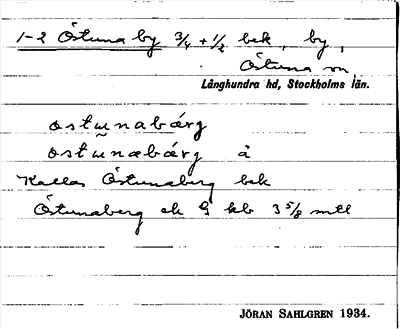 1-2 Östuna by 3/4 + 1/2 bek, by,
Östuna sn
Långhundra hd, Stockholms län.
ostunabárg
ostunæbárg å
Kallas Östunaberg bek
Östunaberg ek G kb 3 5/8 mtl
JÖRAN SAHLGREN 1934.